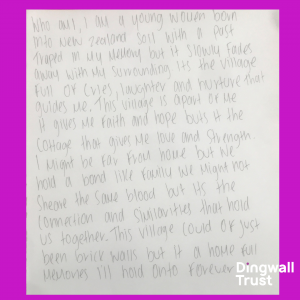 Who am I, I am a young women born
into New Zealand soil with a past
traped in my memory but it slowly fades
away with my surrounding. Its the village
full of cries, laughter and nurture that
guides me. This village is apart of me
it gives me faith and hope buts it the
cottage that gives me love and strength.
I might be far from home but we
hold a bond like family we might not
sheare the same blood but its the
connection and similarities that hold
us together. This village could of just
been brick walls but it a home full
memories I'll hold onto forever
Dingwall
Trust